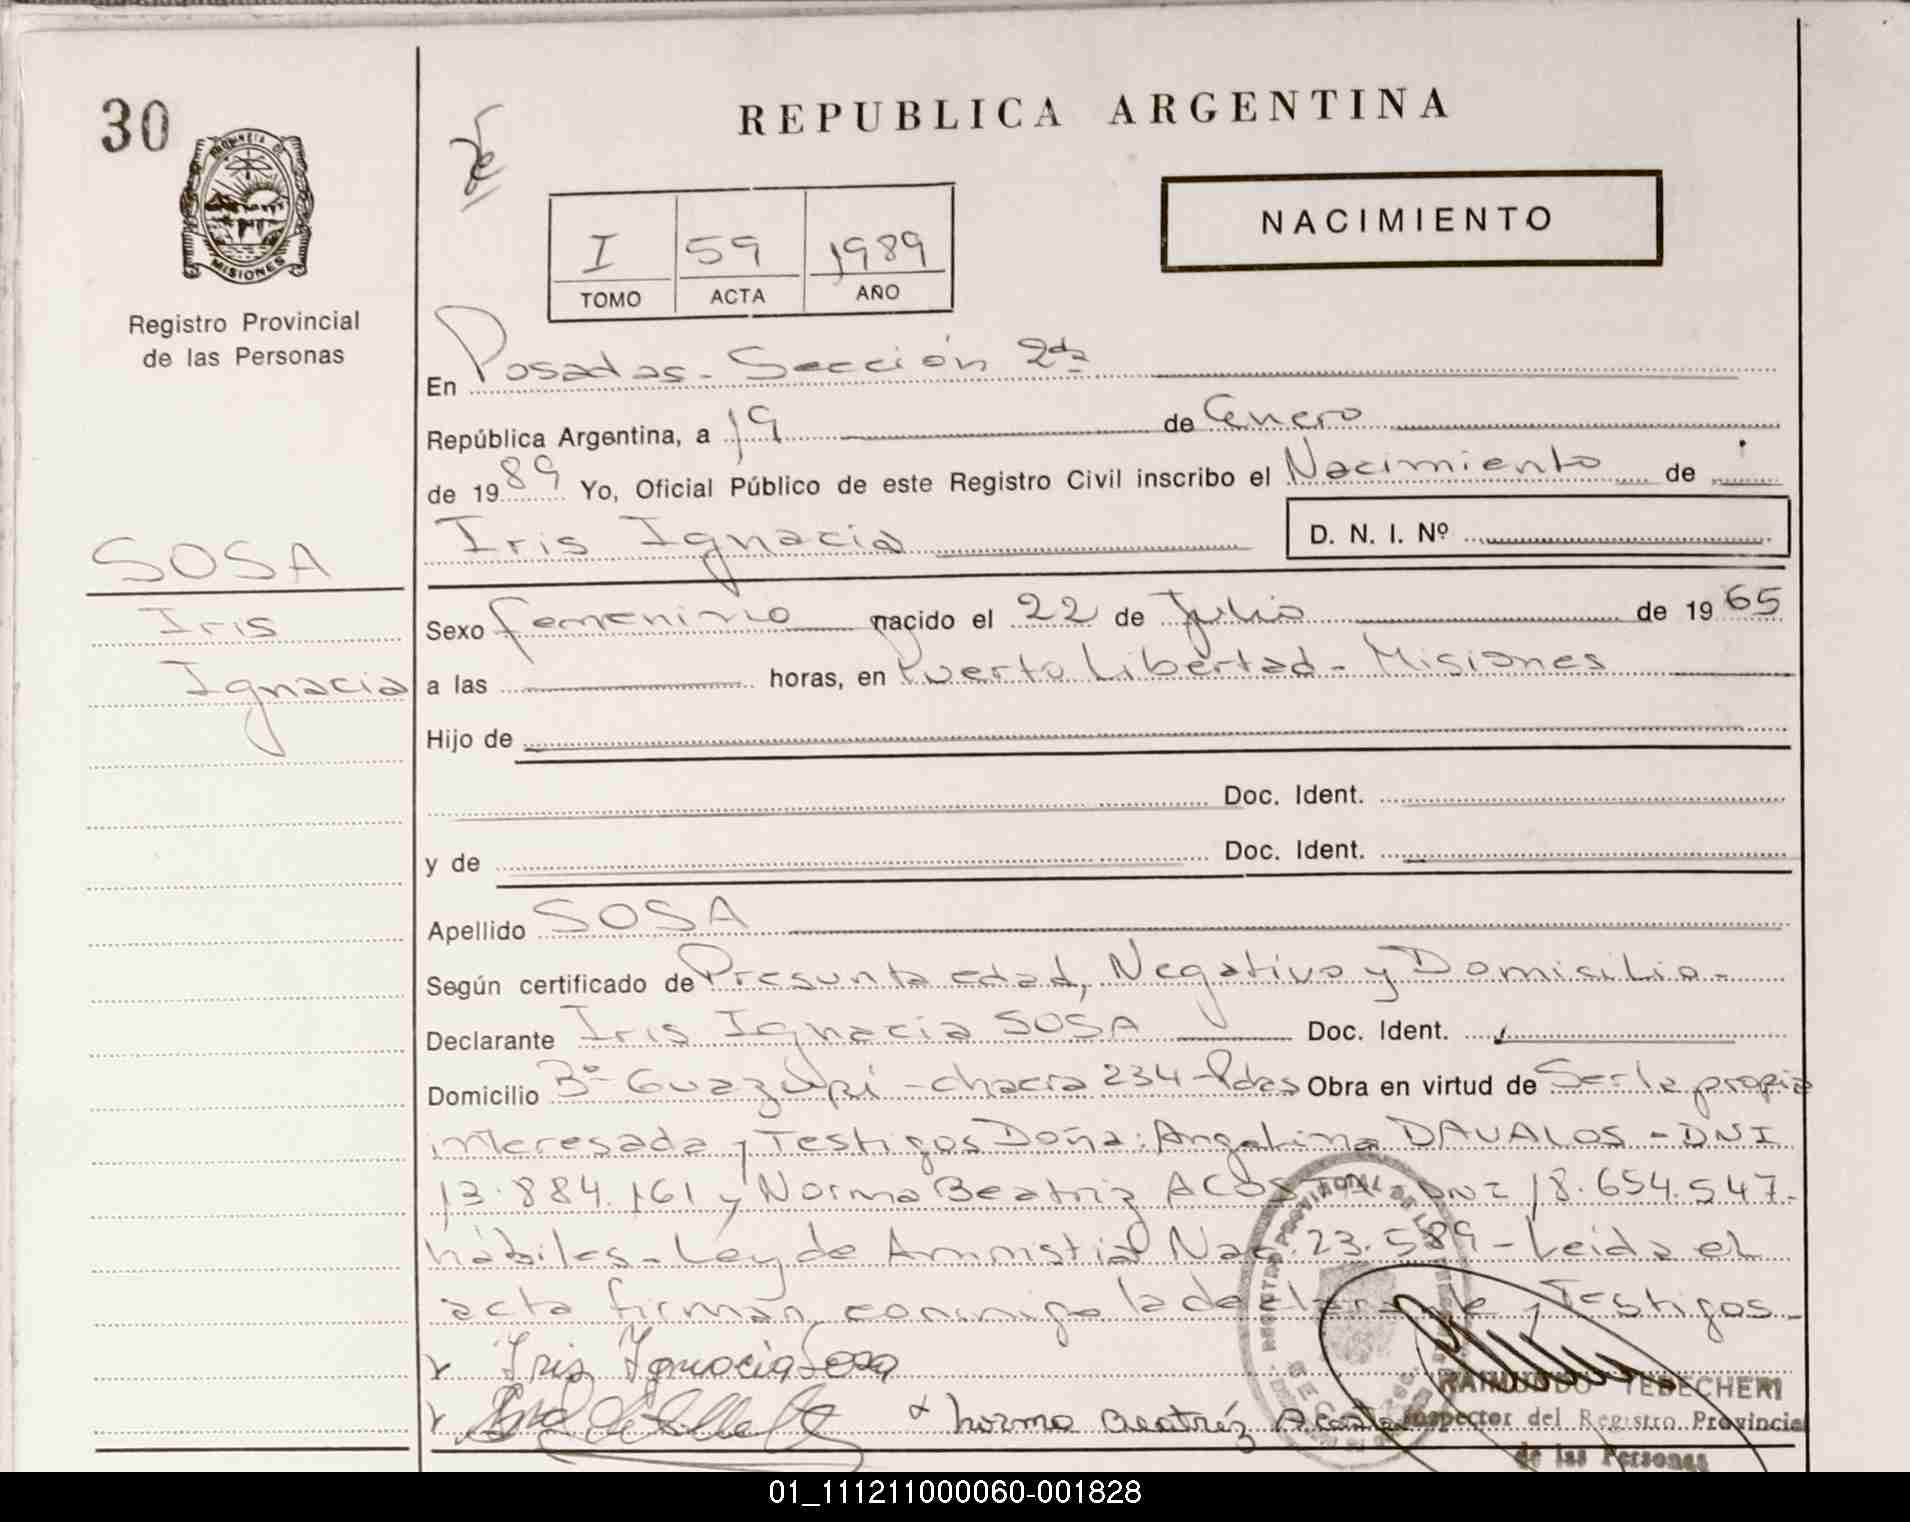 30
PROVINCIA DE
MISIONES
Registro Provincial
de las Personas
SOSA
Iris
Ignacia
REPUBLICA ARGENTINA
NACIMIENTO
I 59 1989
TOMO ACTA AÑO
En Posadas - Sección 2da
República Argentina, a 19 de Enero
de 1989 Yo, Oficial Público de este Registro Civil inscribo el Nacimiento de
Iris Ignacia D. N. I. Nº
Sexo femenino nacido el 22 de Julio de 1965
a las horas, en Puerto Libertad - Misiones
Hijo de
Doc. Ident.
y de Doc. Ident.
Apellido SOSA
Según certificado de Presunta edad, Negativo y Domisilio -
Declarante Iris Ignacia SOSA Doc. Ident.
Domicilio Bº Guazupi - chacra 234 - Pdas Obra en virtud de Ser la propia
interesada y Testigos Doña: Angelina DAVALOS - DNI
13.884.161 y Norma Beatriz ACOSTA - DNI 18.654.547 -
hábiles - Ley de Aministia Nac. 23.589 - Leida el
acta firman conmigo la declarante y Testigos -
Iris Ignacia Sosa
Norma Beatríz Acosta
RAIMUNDO TEDECHERI
Inspector del Registro Provincial
de las Personas
01_111211000060-001828